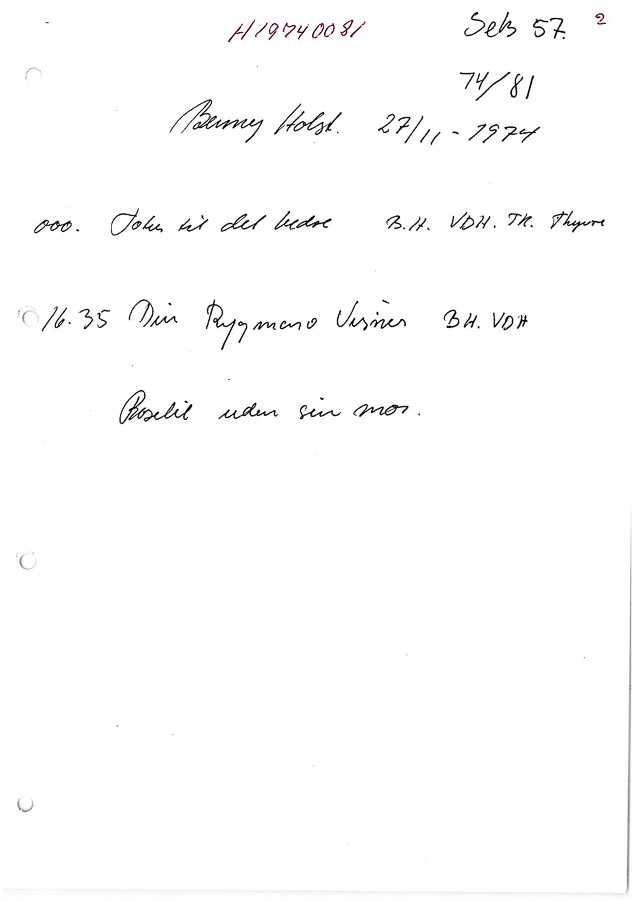 H19740081 Sek 57. 2
74/81
Benny Holst. 27/11-1974
000. til det bedre B.H. VDH. TK. Thyure
16.35 Din Rygmarv Visner BH. VDH
Roselil uden sin mor.